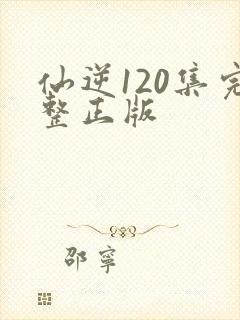 仙逆120集完
整正版
邵寧